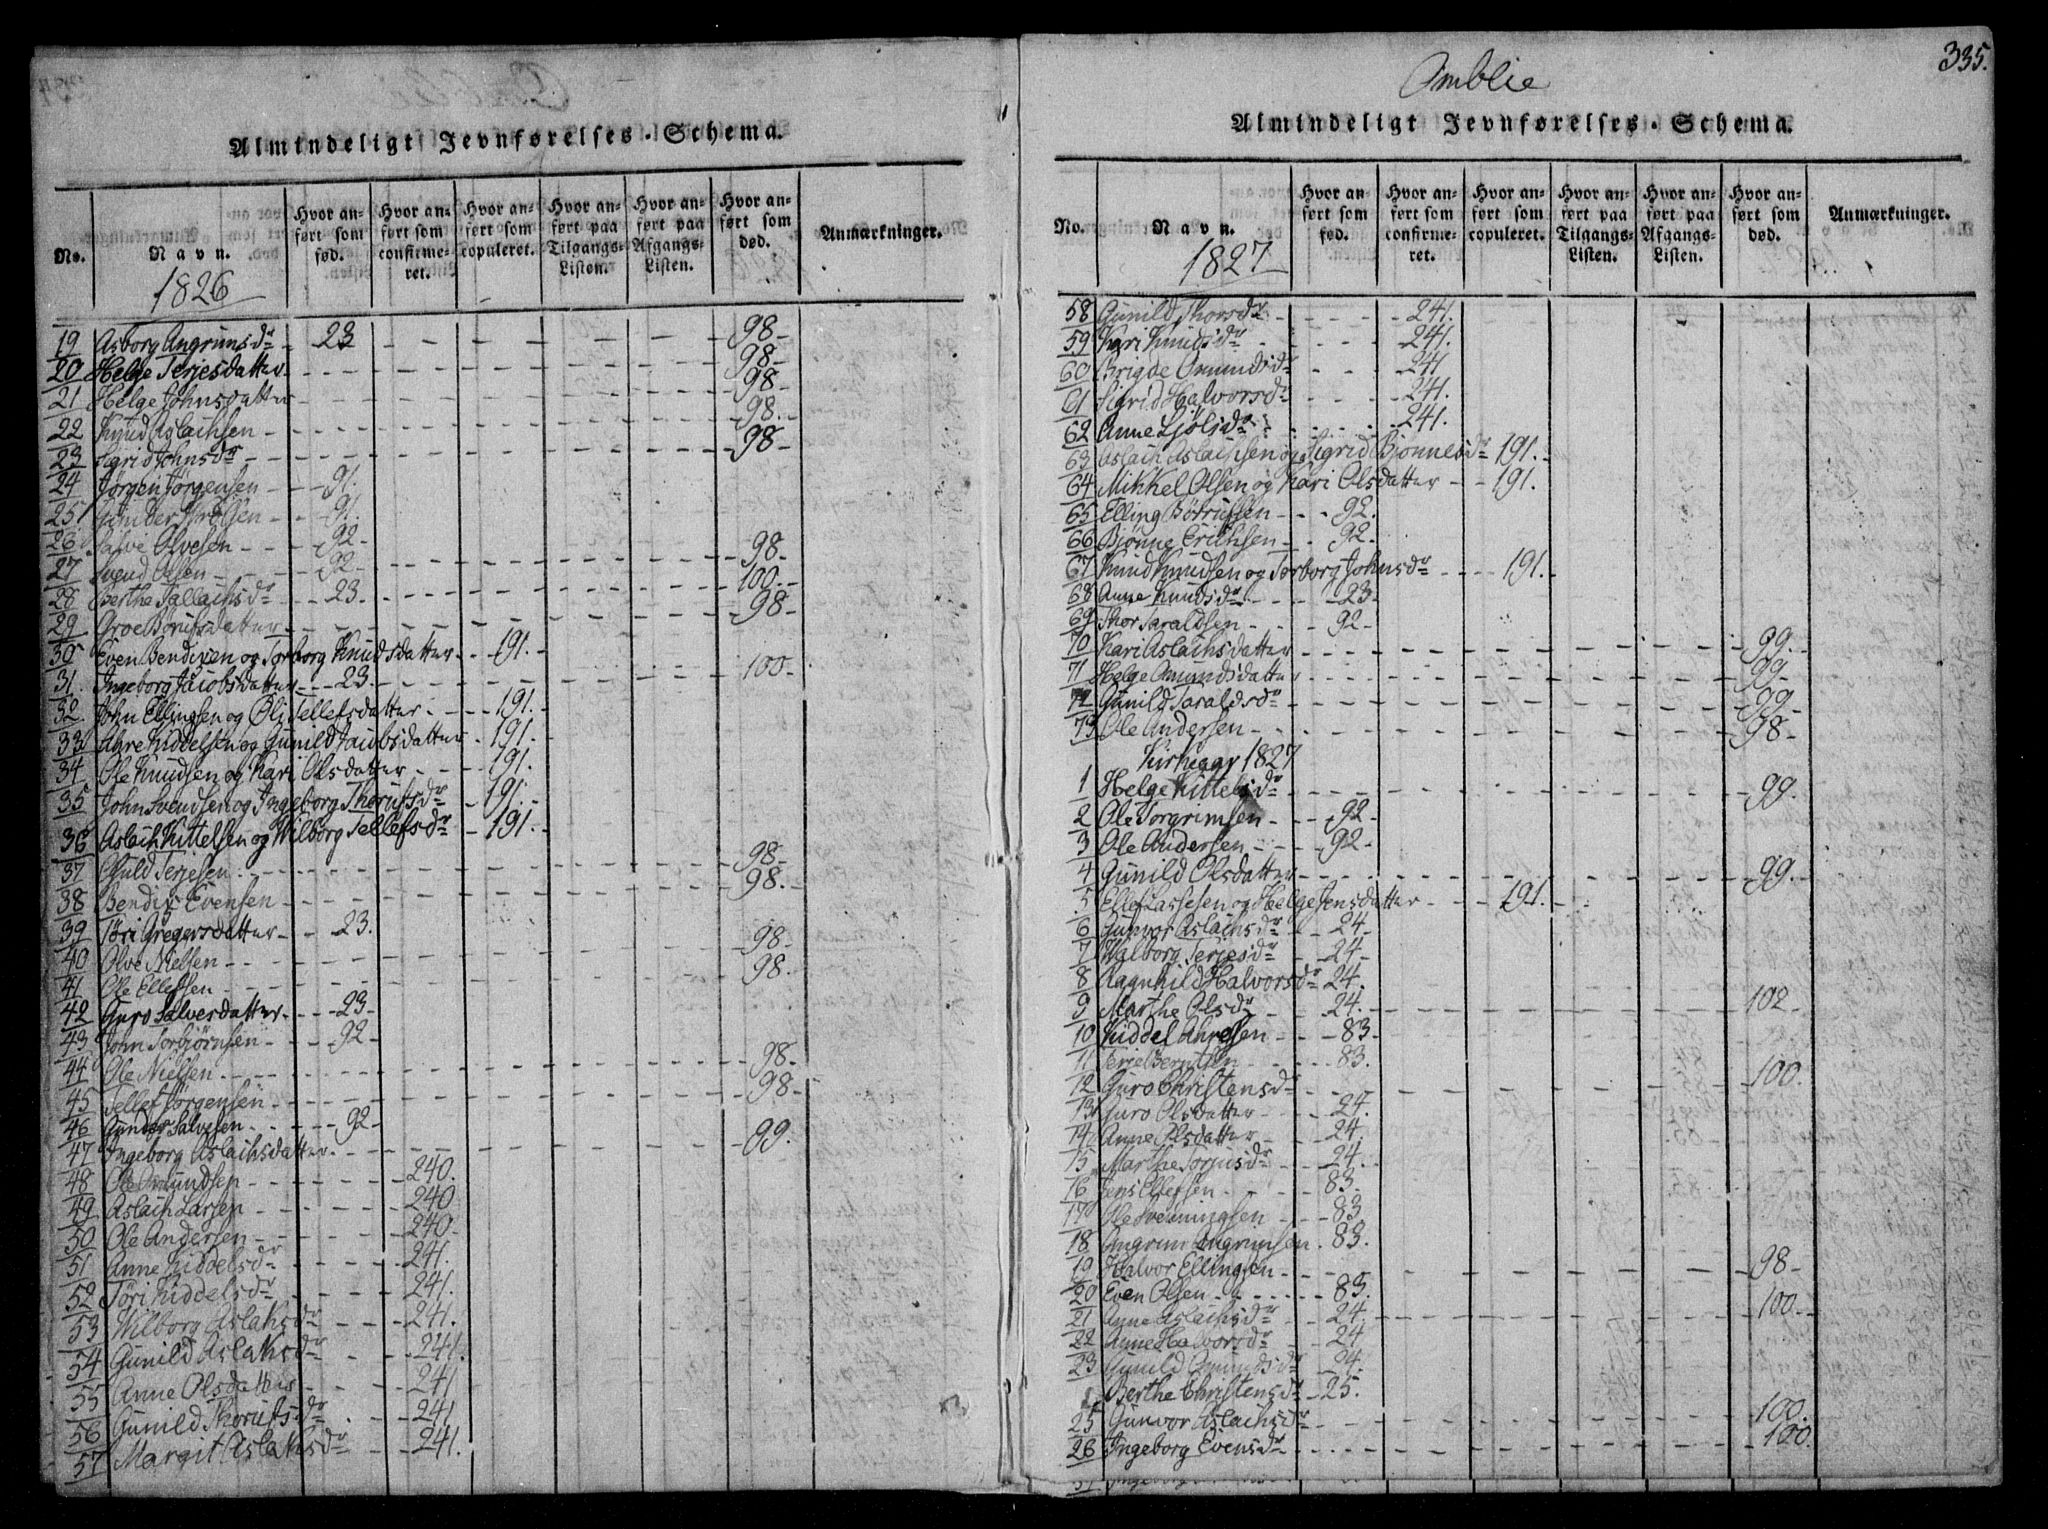 Almindeligt Jevnførelses-Schema.
No. Navn. Hvor anført som fød. Hvor anført som confirmeret. Hvor anført som copuleret. Hvor anført paa Tilgangs-Listen. Hvor anført paa Afgangs-Listen. Hvor anført som død. Anmærkninger.
1826
19 Asborg Angrimsdr 23 98
20 Helge Terjesdatter 98
21 Helge Johnsdatter 98
22 Knud Aslachsen 98
23 Sigrid Johnsdr 98
24 Jørgen Jørgensen 91
25 Gunder 91
26 Salve Olvesen 92
27 Svend Olsen 92 98
28 Berthe Tallachsdr 23 100
29 Groe datter 98
30 Even Bendixen og Torborg Knudsdatter 191
31 Ingeborg Jacobsdatter 23 100
32 John Ellingsen og Oli Tellefsdatter 191
33 Ahre Kiddelsen og Gunild Jacobsdatter 191
34 Ole Knudsen og Kari Olsdatter 191
35 John Svendsen og Ingeborg Thorufsdr 191
36 Aslach Kittelsen og Wilborg Tellefsdr 191
37 Terjesen 98
38 Bendix Evensen 98
39 Tøri Gregersdatter 23
40 Olve Nielsen 98
41 Ole Ellefsen 98
42 Guro Salvesdatter 23
43 John Torbjørnsen 92
44 Ole Nielsen 98
45 Tellef Jørgensen 98
46 Gunder Salvesen 92
47 Ingeborg Aslachsdatter 99
48 Ole Omundsen 240
49 Aslach Larsen 240
50 Ole Andersen 240
51 Anne Kiddelsdr 241
52 Tøri Kiddelsdr 241
53 Wilborg Aslaksdr 241
54 Gunild Aslaksdr 241
55 Anne Olsdatter 241
56 Gunild Thorufsdr 241
57 Margit Aslaksdr 241
335.
Omblie
Almindeligt Jevnførelses-Schema.
No. Navn. Hvor anført som fød. Hvor anført som confirmeret. Hvor anført som copuleret. Hvor anført paa Tilgangs-Listen. Hvor anført paa Afgangs-Listen. Hvor anført som død. Anmærkninger.
1827
58 Gunild Thorsdr 241
59 Kari Knudsdr 241
60 Brigde Omundsdr 241
61 Sigrid Halvorsdr 241
62 Anne 241
63 Aslach Aslachsen og Sigrid Bjonnesdr 191
64 Mikkel Olsen og Kari Olsdatter 191
65 Elling 92
66 Bjønne Erichsen 92
67 Knud Knudsen og Torborg Johnsdr 191
68 Anne Knudsdr 23
69 Thor Taraldsen 92
70 Kari Aslachsdatter 99
71 Helge Omundsdatter 99
72 Gunild Taraldsdr 99
73 Ole Andersen 98
Kirkeaar 1827
1 Helge Kittelsdr 99
2 Ole Torgrimsen 92
3 Ole Andersen 92
4 Gunild Olsdatter 99
5 Ellef Lassesen og Helge Jensdatter 191
6 Gunvor Aslachsdr 24
7 Walborg Terjesdr 24
8 Ragnhild Halvorsdr 24
9 Marthe Olsdr 24 102
10 Kiddel Ahresen 83
11 Terje Berntsen 83
12 Guro Christensdr 100
13 Guro Olsdatter 24
14 Anne Olsdatter 24
15 Marthe Torjusdr 24
16 Jens Ellefsen 83
17 Ole Svenningsen 83
18 Angrim Angrimsen 83
19 Halvor Ellingsen 98
20 Even Olsen 83
21 Anne Aslachsdr 24 100
22 Anne Halvorsdr 24
23 Gunild Omundsdr 24
Berthe Christensdr 25
25 Gunvor Aslachsdr 100
26 Ingeborg Evensdr 100